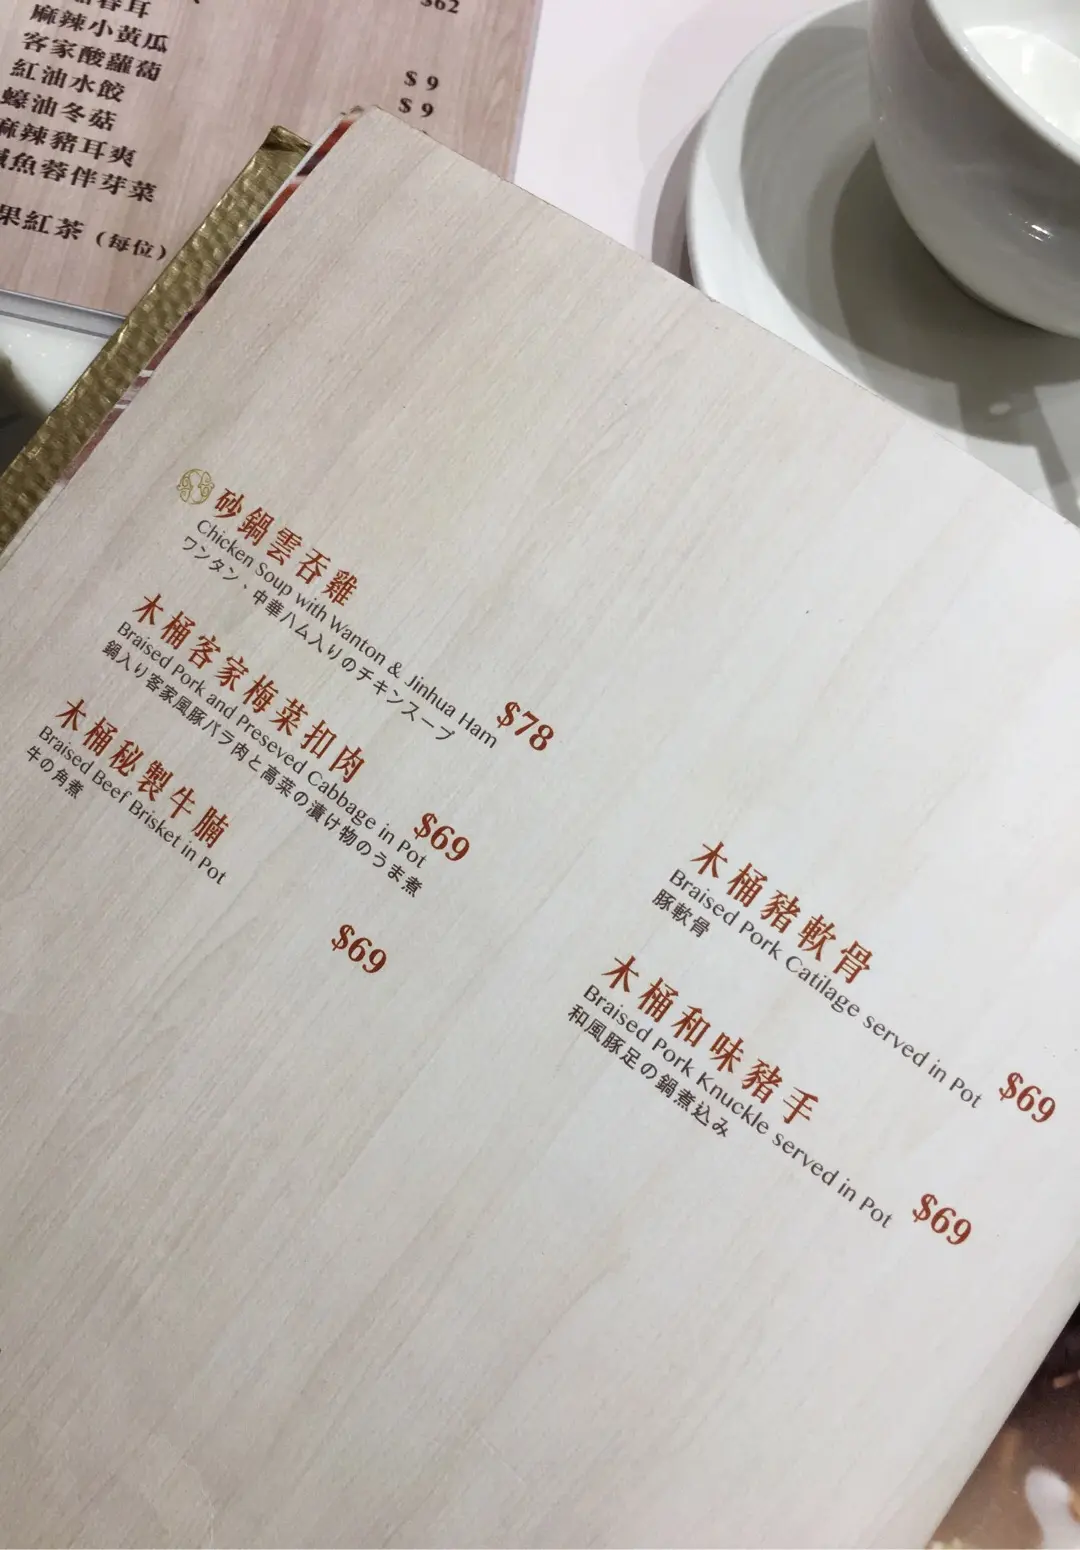 $62
麻辣小黃瓜
客家酸蘿蔔
紅油水餃
$ 9
蠔油冬菇
$ 9
麻辣豬耳爽
鹹魚蓉伴芽菜
果紅茶 (每位)
砂鍋雲吞雞
Chicken Soup with Wanton & Jinhua Ham
ワンタン、中華ハム入りのチキンスープ
$78
木桶客家梅菜扣肉
Braised Pork and Preseved Cabbage in Pot
鍋入り客家風豚バラ肉と高菜の漬け物のうま煮
$69
木桶秘製牛腩
Braised Beef Brisket in Pot
牛の角煮
$69
木桶豬軟骨
Braised Pork Catilage served in Pot
豚軟骨
$69
木桶和味豬手
Braised Pork Knuckle served in Pot
和風豚足の鍋煮込み
$69